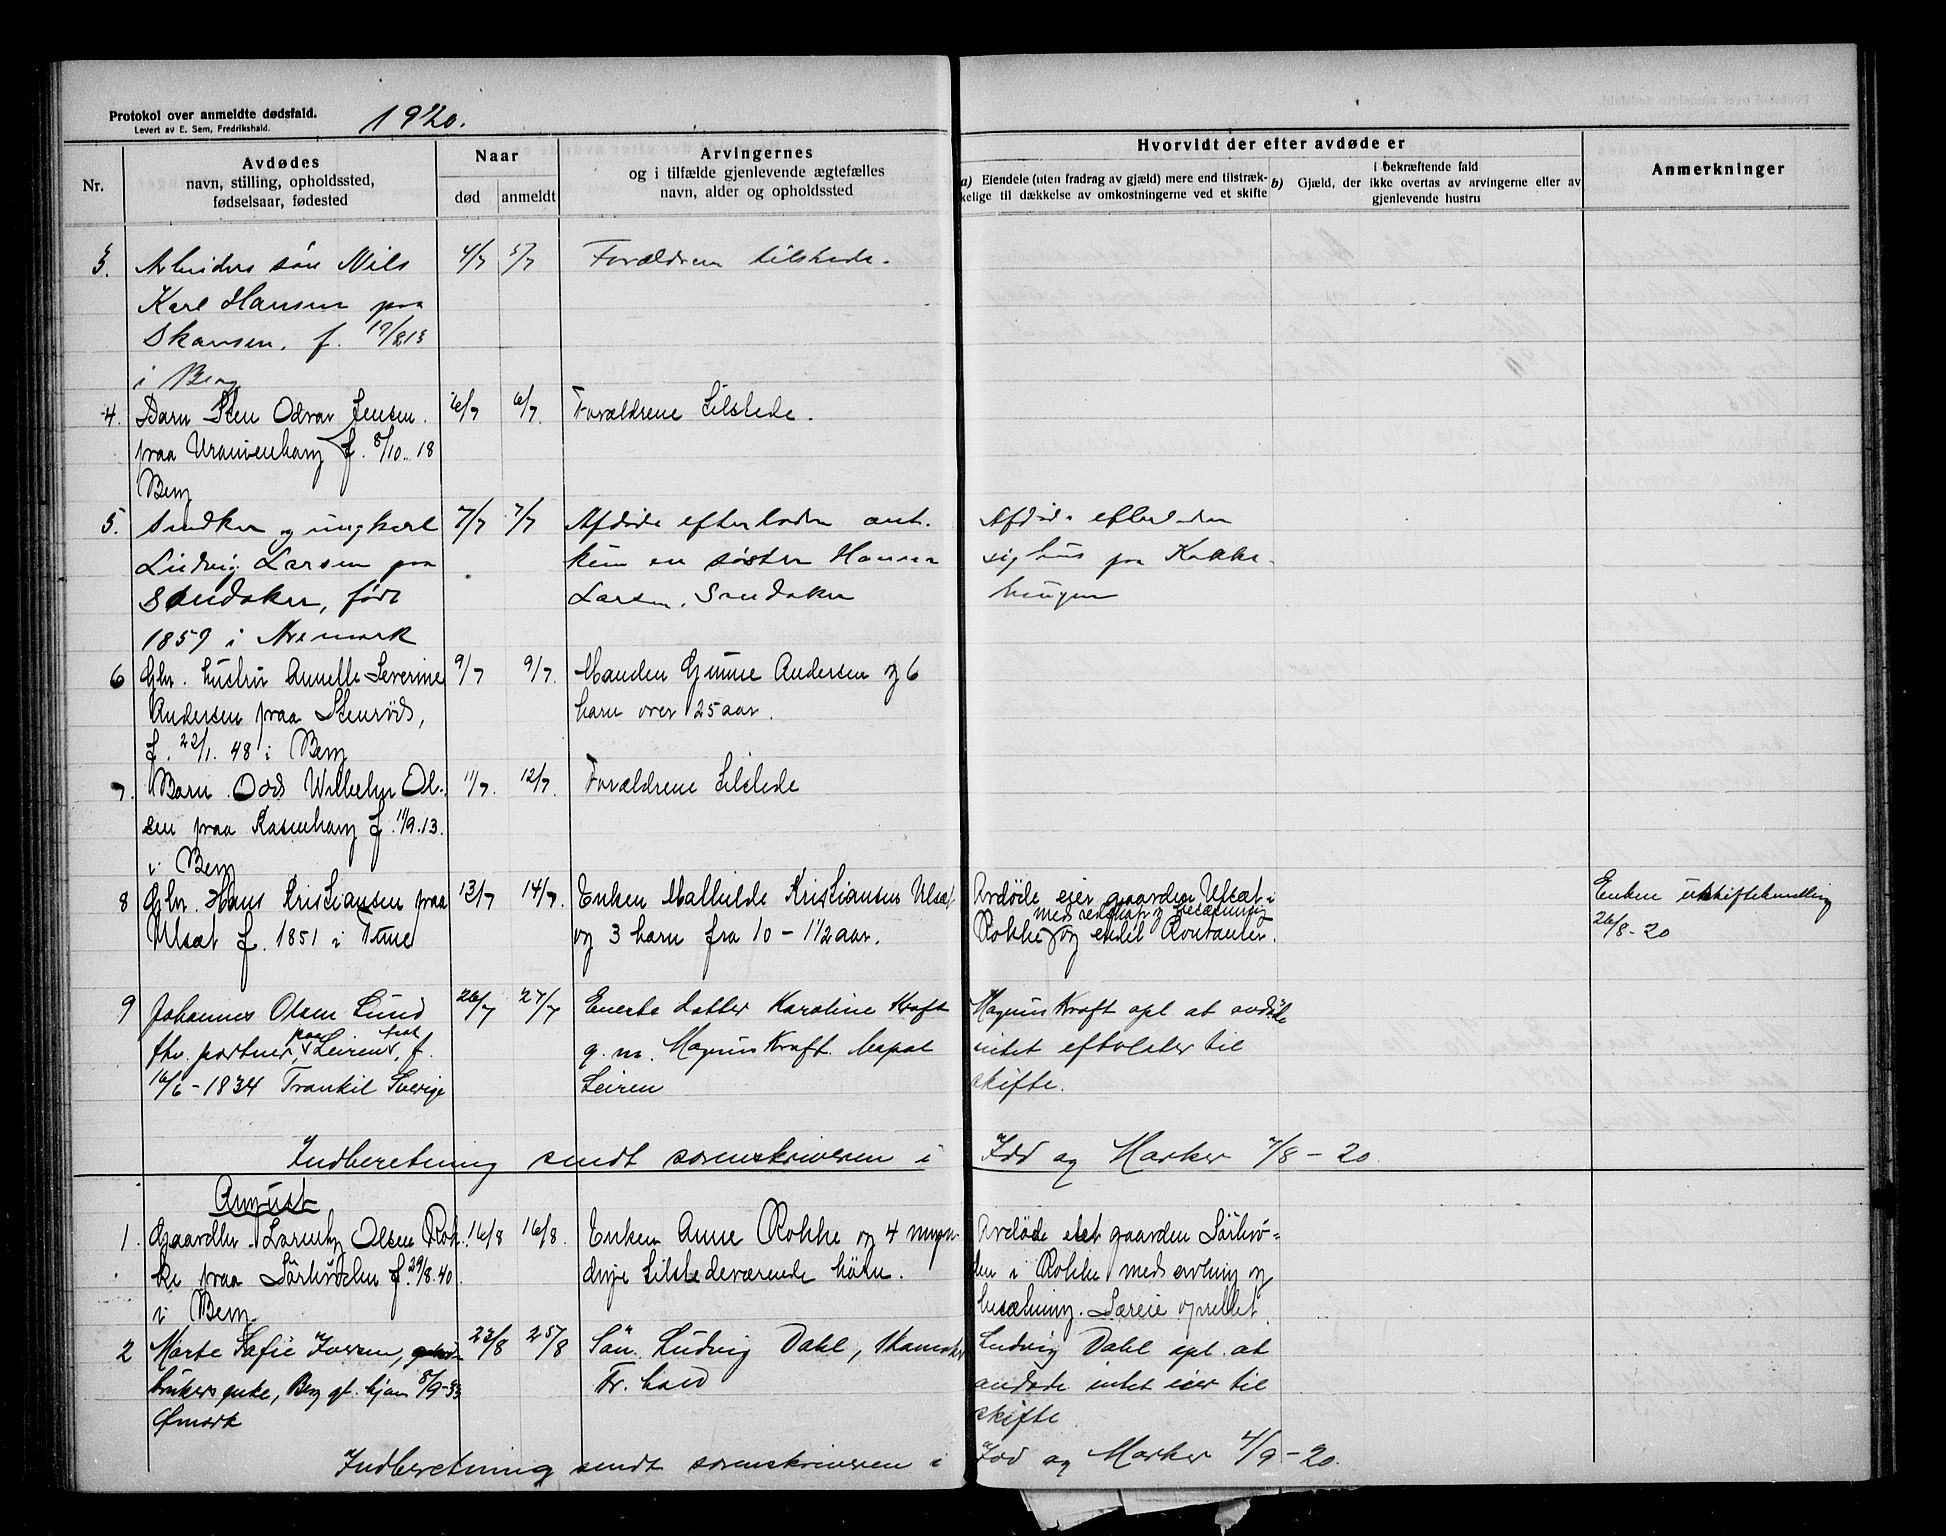 Protokol over anmeldte dødsfald.
Levert av E. Sem, Fredrikshald.
1920.
Nr.
Avdødes
navn, stilling, opholdssted,
fødselsaar, fødested
Naar
død
anmeldt
Arvingernes
og i tilfælde gjenlevende ægtefælles
navn, alder og opholdssted
Hvorvidt der efter avdøde er
a) Eiendele (uten fradrag av gjæld) mere end tilstræk-
kelige til dækkelse av omkostningerne ved et skifte
i bekræftende fald
b) Gjæld, der ikke overtas av arvingerne eller av
gjenlevende hustru
Anmerkninger
3. Arbeiders søn Nils 4/7 5/7 Forældrene tilstede.
Karl Hansen paa
Skansen, f. 19/8 13
i Berg
4. Barn Sten Odvar Jensen 6/7 6/7. Forældrene tilstede.
paa Uranienborg f. 8/10. 18
Berg
5. Snedker og ungkarl 7/7 7/7 Afdøde efterlader ant. Afdøde efterlader
Ludvig Larsen paa kun en søster Hanna sig hus paa Kokke-
Sandaker, født Larsen, Sandaker haugen
1859 i Aremark
6 Gbr. hustru Annette Severine 9/7 9/7. Manden Gunne Andersen og 6
Andersen paa Stensrød, barn over 25 aar.
f. 22/1. 48 i Berg
7. Barn Odd Wilhelm Ol- 11/7. 12/7. Forældrene tilstede
sen paa Rosenborg f. 11/9. 13.
i Berg
8 Gbr. Hans Kristiansen paa 13/7 14/7. Enken Mathilde Kristiansen Ulsæt Avdøde eier gaarden Ulsæt i Enken uskiftebevilling
Ulsæt f. 1851 i Tune og 3 barn fra 10 - 12 aar. Rokke med redskap og besætning og endel Kontanter. 26/8-20
9 Johannes Olsen Lund 26/7 27/7 Eneste datter Karoline Kraft Magnus Kraft opl at avdøde
fhv. portner, paa Leiren, f. g. m. Magnus Kraft. intet efterlater til
16/6-1834 Trankil Sverige Leiren skifte.
Indberetning sendt sorenskriveren i Idd og Marker 7/8-20.
August
1. Gaardbr. Lorentz Olsen Rok- 16/8 16/8. Enken Anne Rokke og 4 myn- Avdøde eiet gaarden Sörbrö-
ke paa Sörbröden f. 29/8. 40 dige tilstedeværende børn. den i Rokke med avling og
i Berg besætning. Særeie oprettet.
2 Marte Sofie Iversen, 23/8 25/8 Sön Ludvig Dahl, Ludvig Dahl opl. at
brukers enke, Berg gl. hjem 8/9-33 Fr. hald avdøde intet eier til
Ømark skifte.
Indberetning sendt sorenskriveren i Idd og Marker 4/9-20.